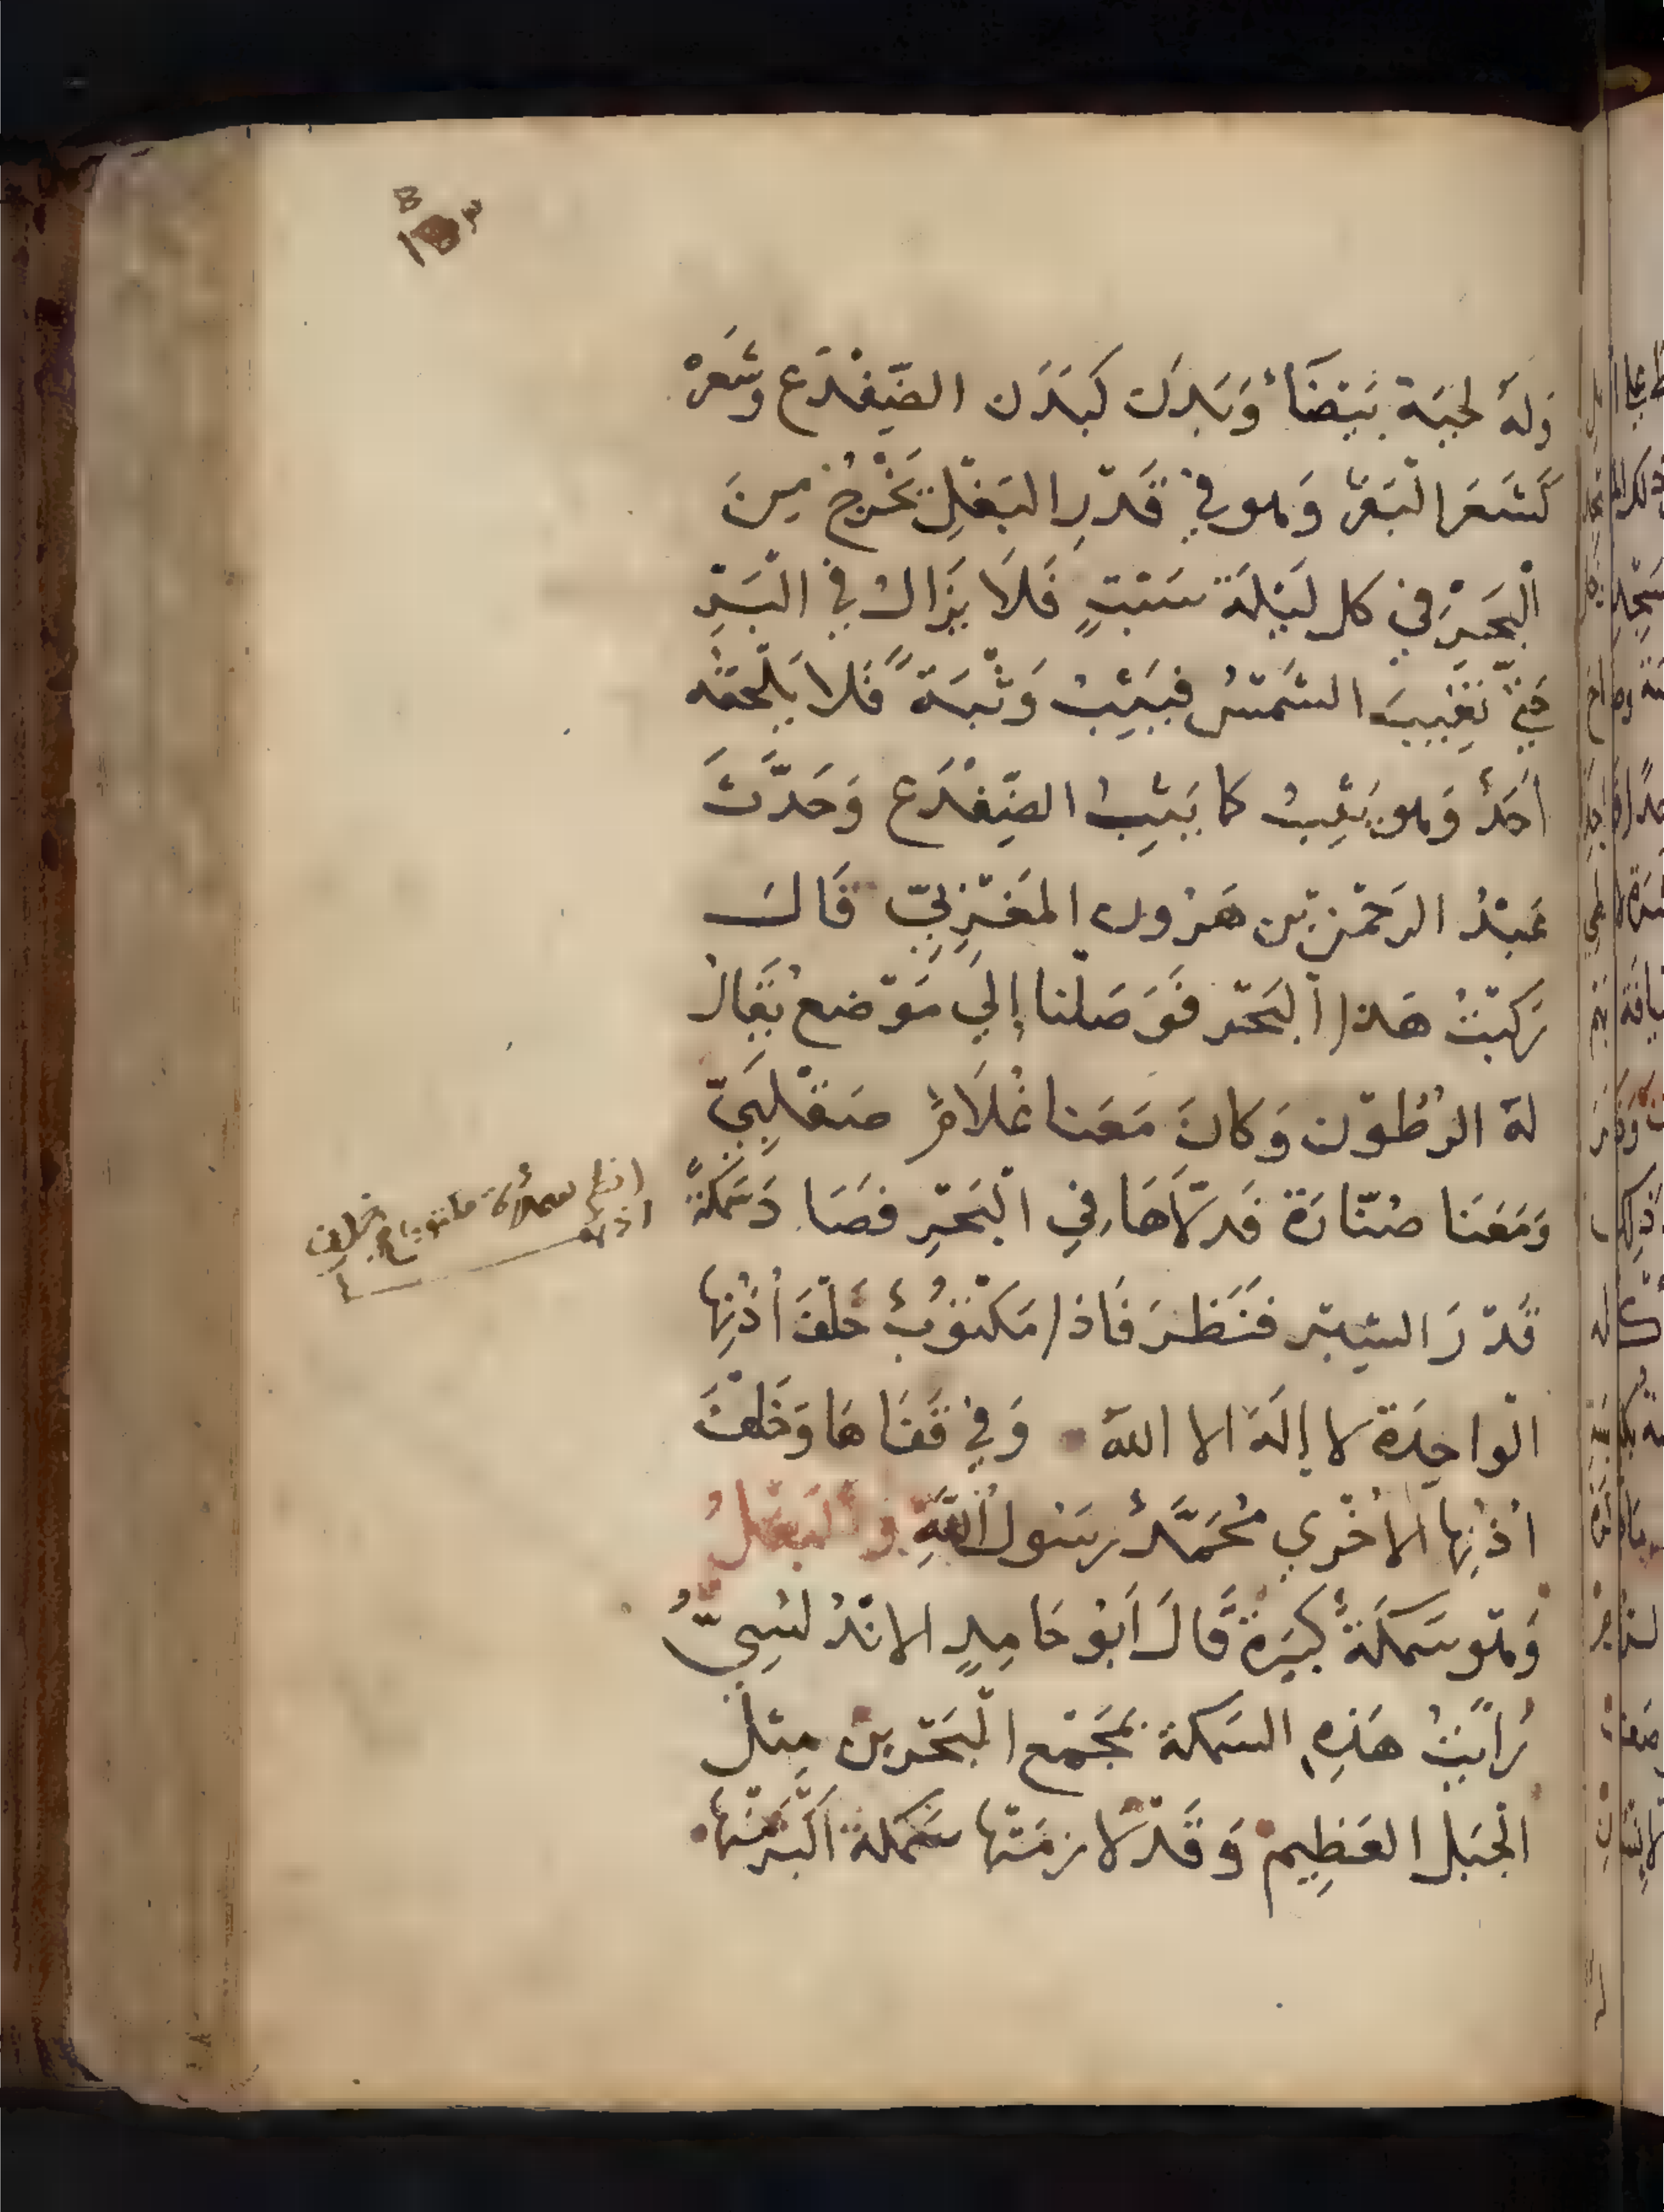 وَلهُ لحِيَة بَيْضَآءُ وَبَدَن كَبَدَن الضِّفْدَع وشَعَرْ
كَشَعَر الْبَقَرْ وَهو في قَدْرِ البَغْلِ يَخْرُجُ مِنَ
الْبَحْرِ في كل لَيْلَة سَبْتٍ فَلَا يَزَال في الْبَرِّ
حَتّى تَغِيبَ الشَمْسُ فيَثِبُ وَثْبَةً فَلا يَلْحَقُه
أَحَدٌ وَهو يَثِبُ كما يَثِبُ الضِفْدَع وَحَدَّثَ
عَبْدُ الرَحْمٰن بْن هَرُون المَغْرِبيّ قَالَ
رَكِبْتُ هَذا الْبَحْر فَوَصَلْنا إلَي مَوْضع يُقَالُ
لهُ الرُطُوْن وَكانَ مَعَنا غُلَامٌ صَقْلَبِيّ
وَمَعَنا صُنّارَة فَدَلَّاهَا في الْبَحْرِ فصَادَ سَمَكَةً
قَدْرَ الشِبْر فَنَظَرَ فَاذا مَكْتُوبٌ خَلْفَ أُذُنِها
الْواحِدَة لا إلَهَ الا اللهُ وَفي قَفَاهَا وَخَلْفَ
اُذُنِها الأخْرَي مُحَمَّدٌ رسَول اللَّهِ و الْبَغْلُ
وَهو سَمَكَةٌ كبيَرة قَالَ اَبُو حَامِدٍ الانْدُلسِيّ
رَاَيْتُ هَذِهِ السَمَكة بمَجْمَع الْبَحْرين مِثل
الْجَبَل العَظِيم وَقَدْ لازمَتْها سَمَكَة اَكْبَر مِنْها
انظر سمكة مكتوب خلف
اذنها